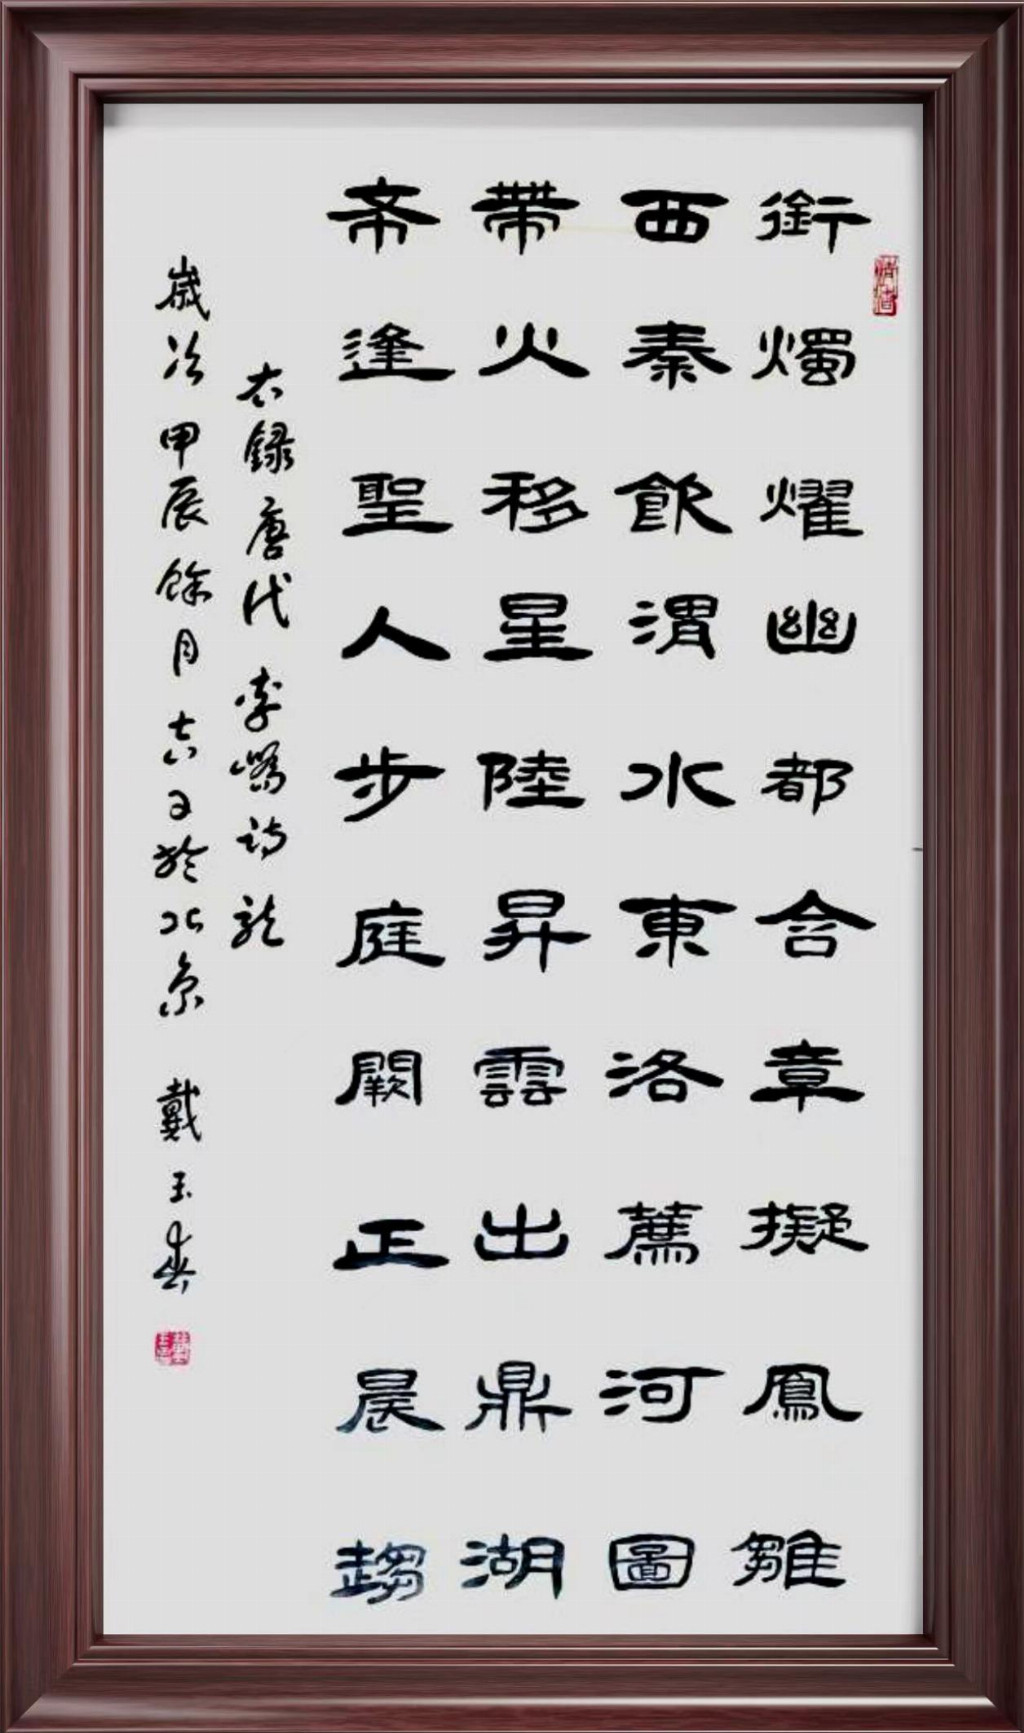 銜燭耀幽都含章擬鳳雛
西秦飲渭水東洛薦河圖
帶火移星陸昇雲出鼎湖
希逢聖人步庭闕正晨趨
右錄唐代李嶠詩龍
歲次甲辰餘月吉日於北京 戴玉春